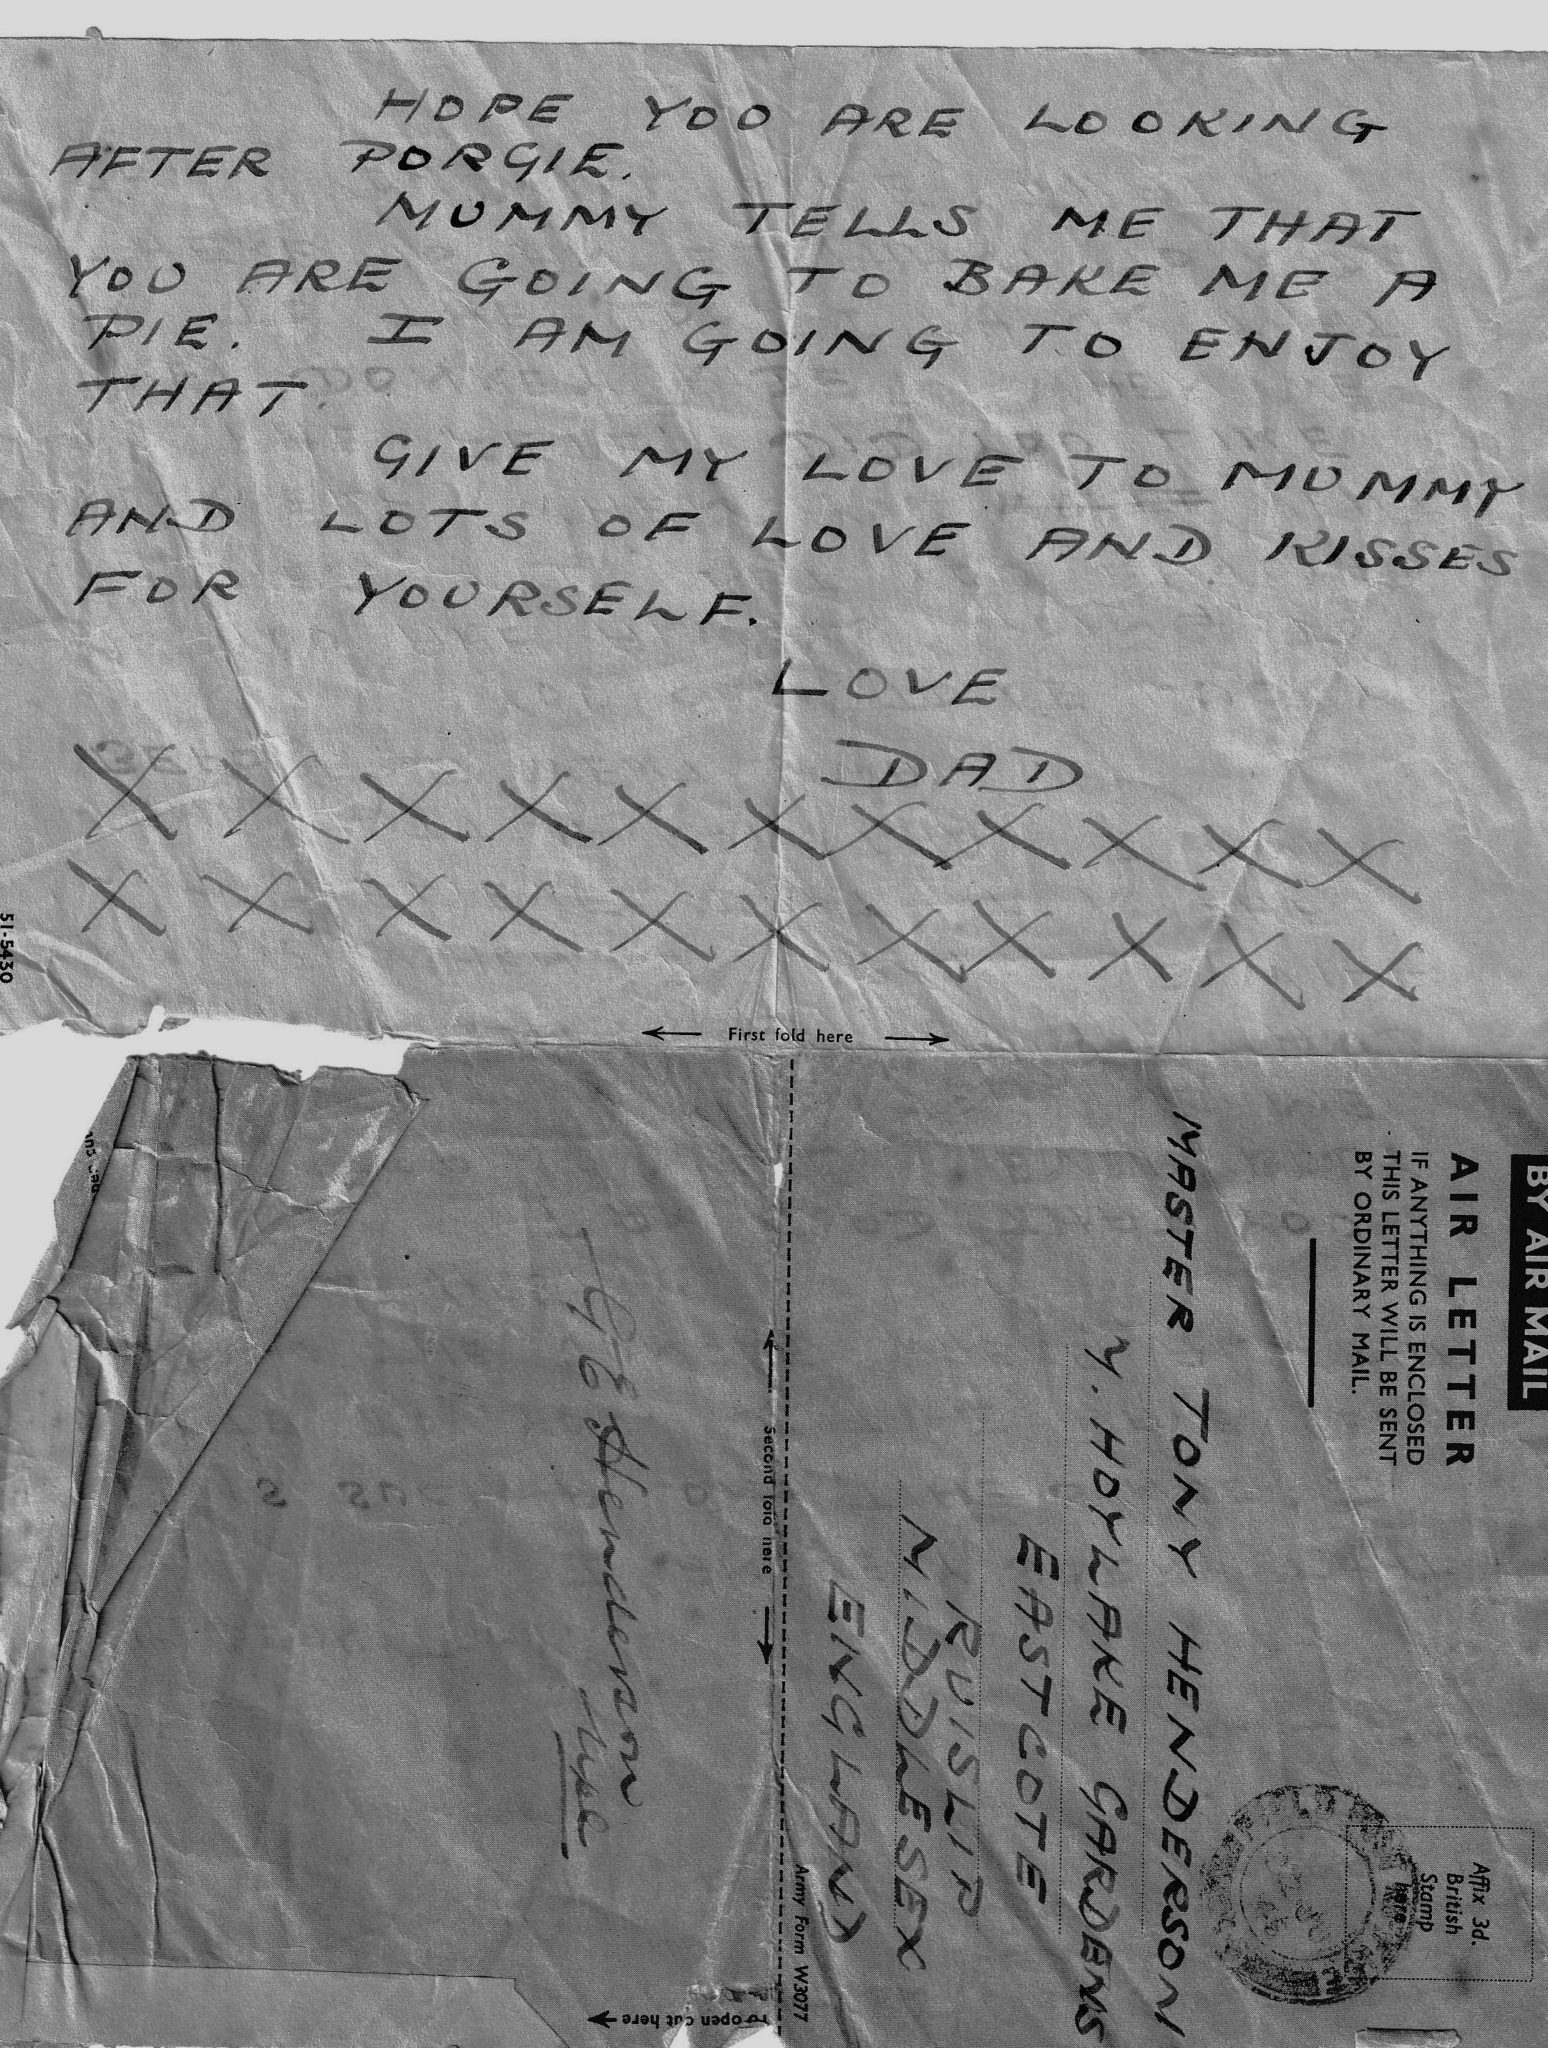 HOPE YOU ARE LOOKING
AFTER PORGIE.
MUMMY TELLS ME THAT
YOU ARE GOING TO BAKE ME A
PIE. I AM GOING TO ENJOY
THAT.
GIVE MY LOVE TO MUMMY
AND LOTS OF LOVE AND KISSES
FOR YOURSELF.
LOVE
DAD
X X X X X X X X X X X
X X X X X X X X X X X
51-5430
← First fold here →
BY AIR MAIL
AIR LETTER
IF ANYTHING IS ENCLOSED
THIS LETTER WILL BE SENT
BY ORDINARY MAIL.
Affix 3d.
British
Stamp
here
MASTER TONY HENDERSON
4. HOYLAKE GARDENS
EASTCOTE
RUISLIP
MIDDLESEX
ENGLAND
Army Form W3077
← Second fold here →
Henderson
To open cut here →